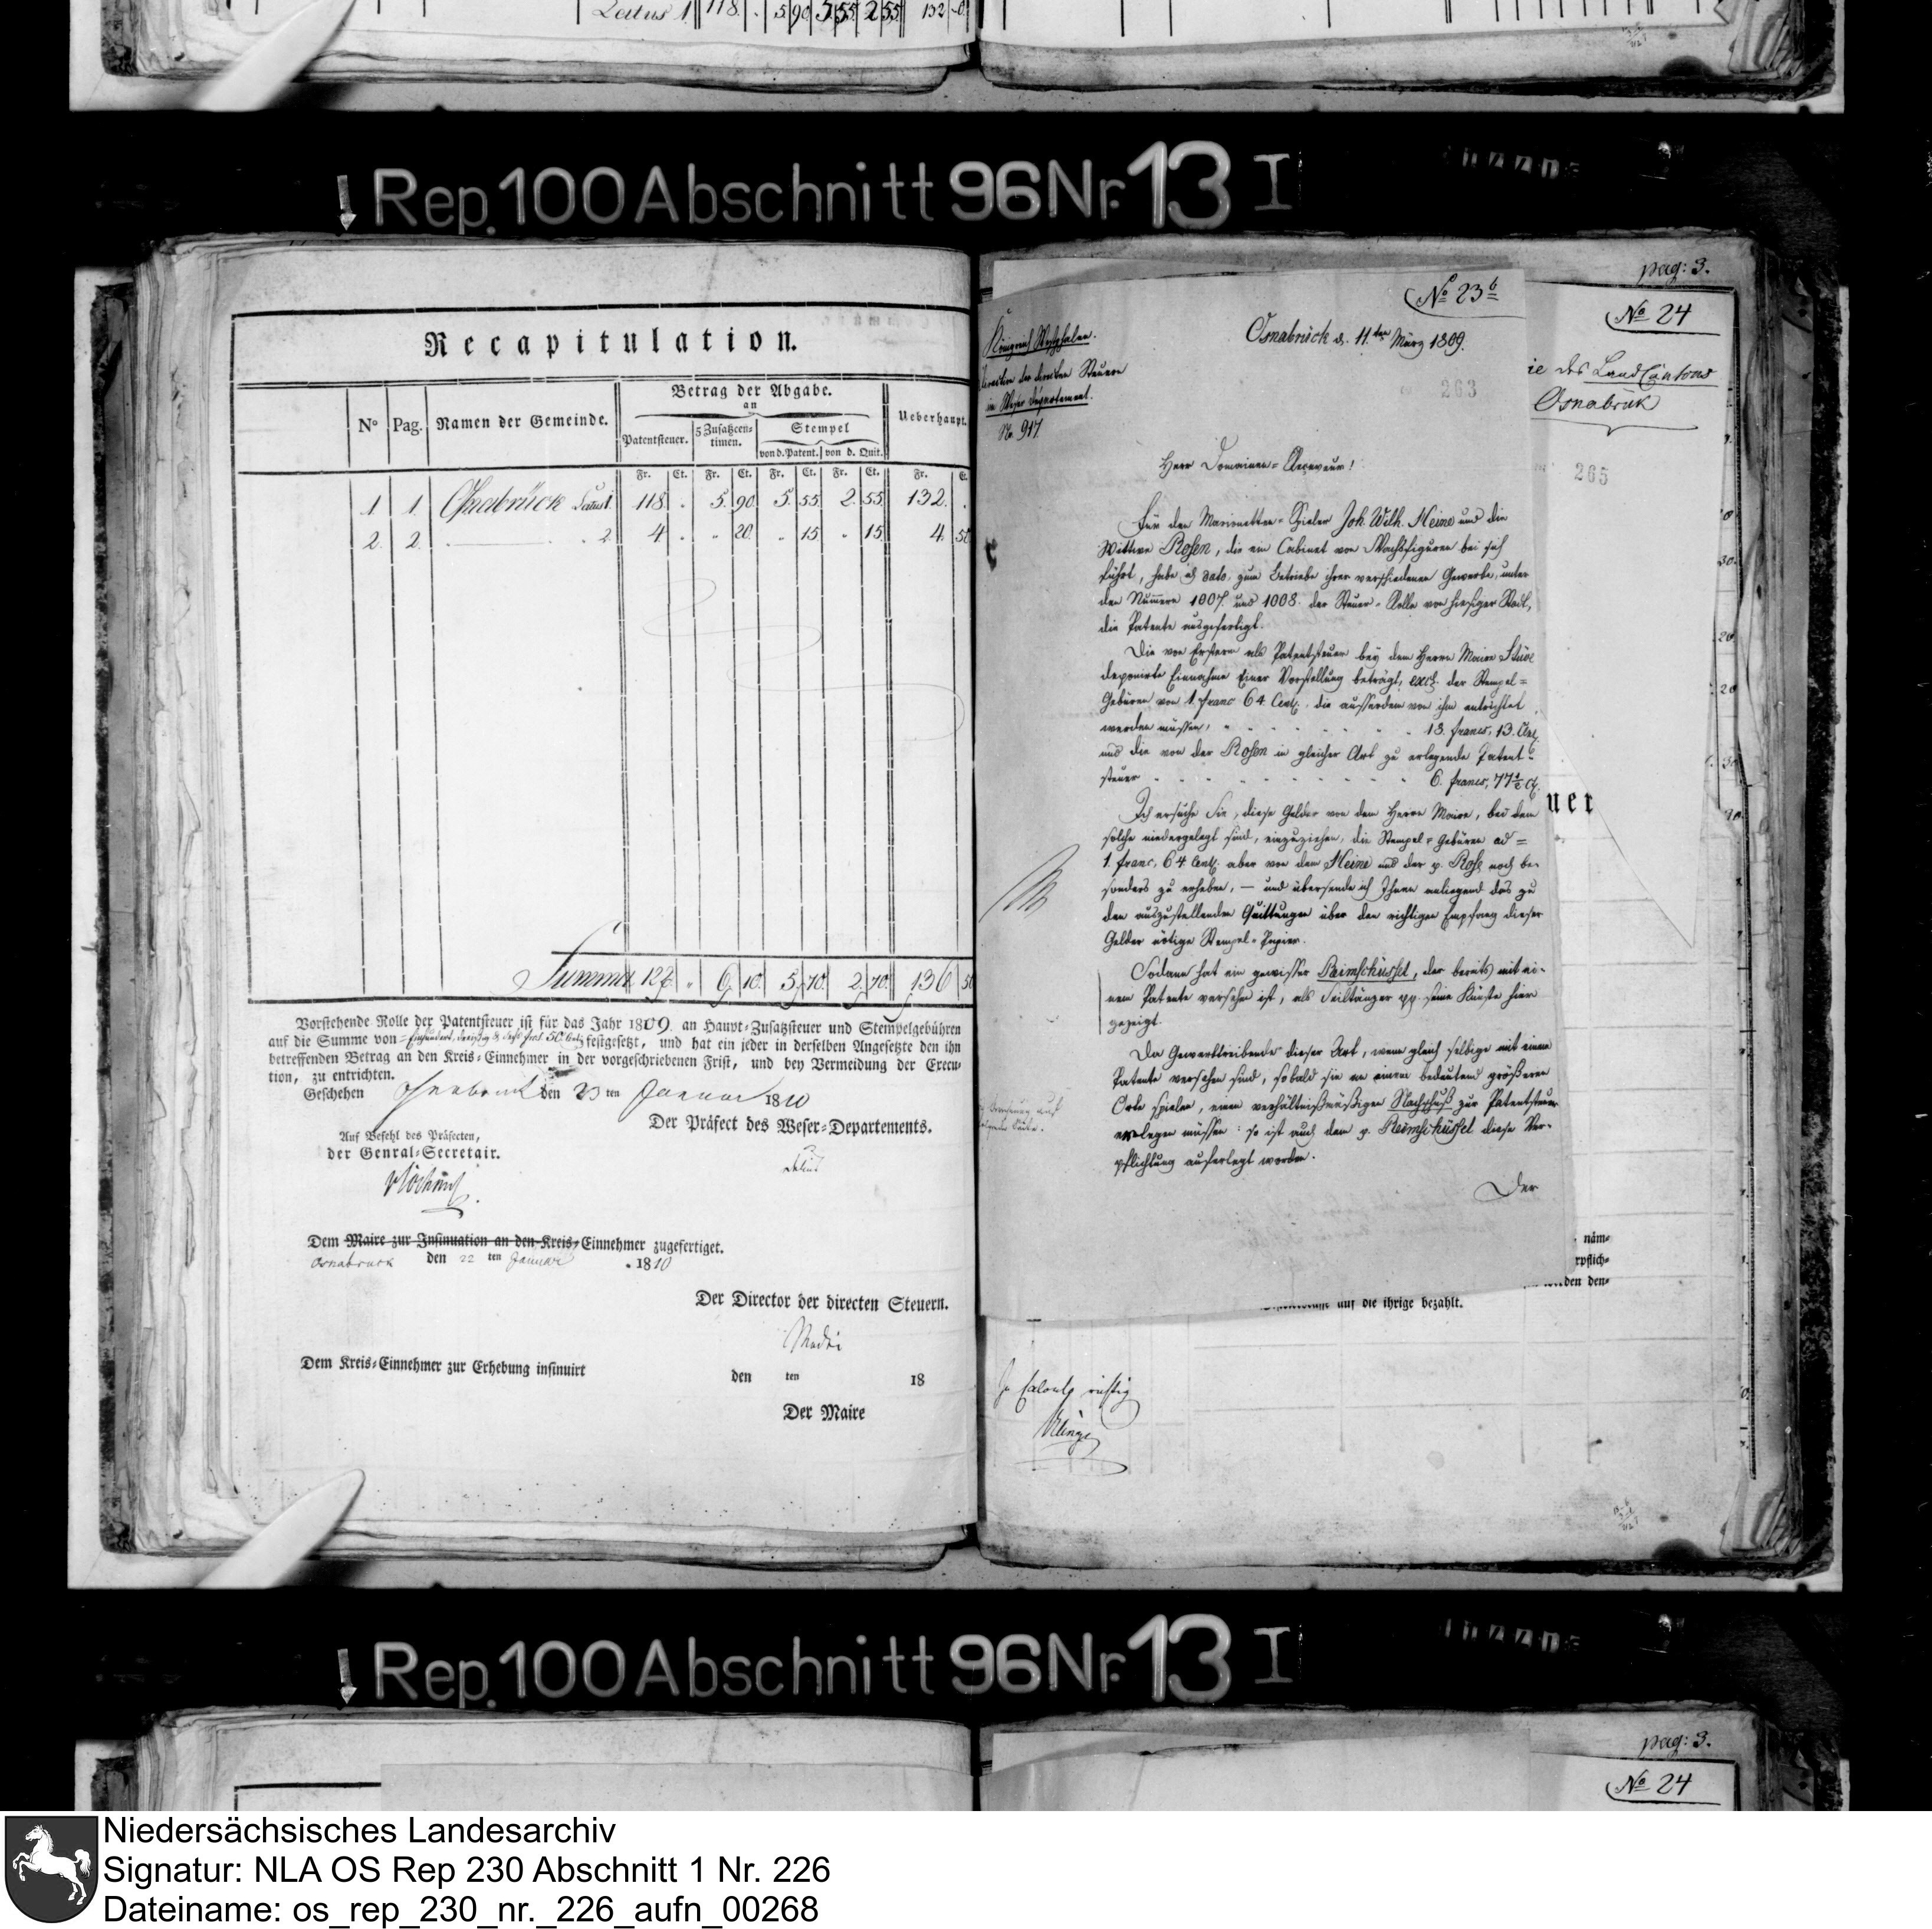 Latus 1. 118. . 5 90 5 55 2 55 132 .
Rep. 100 Abschnitt 96 Nr. 13 I
Recapitulation.
Betrag der Abgabe.
an
N° Pag. Namen der Gemeinde. Patentsteuer. 5 Zusatzcen- timen. Stempel Ueberhaupt.
von d. Patent. von d. Quit.
Fr. Ct. Fr. Ct. Fr. Ct. Fr. Ct. Fr. C.
1 1. Osnabrück Latus 1. 118. . 5. 90. 5. 55. 2. 55. 132. .
2. 2. 2. 4. . " 20. " 15. " 15. 4. 50
Summa 122. " 6. 10. 5. 70. 2. 70. 136 50
Vorstehende Rolle der Patentsteuer ist für das Jahr 1809. an Haupt-Zusatzsteuer und Stempelgebühren
auf die Summe von Einhundert, dreißig & sechs Frcs. 50 Cent. festgesetzt, und hat ein jeder in derselben Angesetzte den ihn
betreffenden Betrag an den Kreis-Einnehmer in der vorgeschriebenen Frist, und bey Vermeidung der Execu-
tion, zu entrichten.
Geschehen Osnabrück den 23 ten Januar 1810
Der Präfect des Weser-Departements.
Auf Befehl des Präfecten,
der Genral-Secretair.
Delius
Dem Maire zur Insinuation an den Kreis-Einnehmer zugefertiget.
Osnabruck den 22 ten Januar 1810
Der Director der directen Steuern.
Dem Kreis-Einnehmer zur Erhebung insinuirt
den ten 18
Der Maire
pag: 3.
No 24
No 23 b
Königreich Westphalen.
Direction der directen Steuern
im Weser Departement.
No. 917
Osnabrück d. 11.ten März 1809.
263
ie des LandCantons
Osnabrük
265
Herr Domainen-Receveur!
Für den Marionetten-Spieler Joh. Wilh. Heine und die
Wittwe Rosen, die ein Cabinet von Wachsfiguren bei sich
führt, habe ich dato. zum Betriebe ihrer verschiedenen Gewerbe, unter
den Nummern 1007. und 1008. der Steuer-Rolle von hiesiger Stadt,
die Patente ausgefertigt.
Die von Erstern als Patentsteuer bey dem Herrn Maire Stüve
deponirte Einnahme Einer Vorstellung beträgt, excl. der Stempel-
Gebüren von 1. franc 64. Cent., die ausserdem von ihm entrichtet
werden müssen, 13. francs, 13. Cent.
und die von der Rosen in gleicher Art zu erlegende Patent-
steuer 6. francs, 77½ Ct.
Ich ersuche Sie, diese Gelder von dem Herrn Maire, bei dem
solche niedergelegt sind, einzuziehen, die Stempel-Gebüren ad =
1. franc, 64 Cent. aber von dem Heine und der p. Rose noch be-
sonders zu erheben, — und übersende ich Ihnen anliegend das zu
den auszustellenden Quittungen über den richtigen Empfang dieser
Gelder nötige Stempel-Papier.
Sodann hat ein gewisser Reimschüssel, der bereits mit ei-
nem Patente versehen ist, als Seiltänzer pp. seine Künste hier
gezeigt.
Da Gewerbtreibende dieser Art, wenn gleich selbige mit einem
Patente versehen sind, sobald sie an einem bedeutend größeren
Orte spielen, einen verhältnißmäßigen Nachschuß zur Patentsteuer
erlegen müssen: so ist auch dem p. Reimschüssel diese Ver-
pflichtung auferlegt worden.
Der
uer
näm-
rpflich-
den den-
auf die ihrige bezahlt.
In Calculo richtig
Klinge
Rep. 100 Abschnitt 96 Nr. 13 I
pag: 3.
No 24
Niedersächsisches Landesarchiv
Signatur: NLA OS Rep 230 Abschnitt 1 Nr. 226
Dateiname: os_rep_230_nr._226_aufn_00268